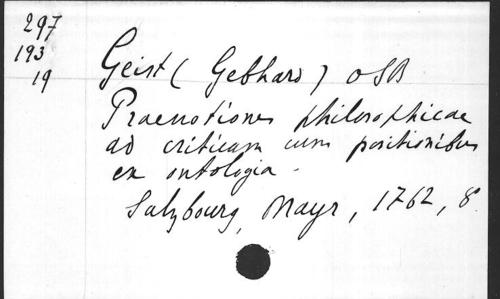 297
193
19
Geist (Gebhard) OSB
Praenotiones philosophicae
ad criticam cum positionibus
ex ontologia.
Salzbourg, Mayr, 1762, 8°